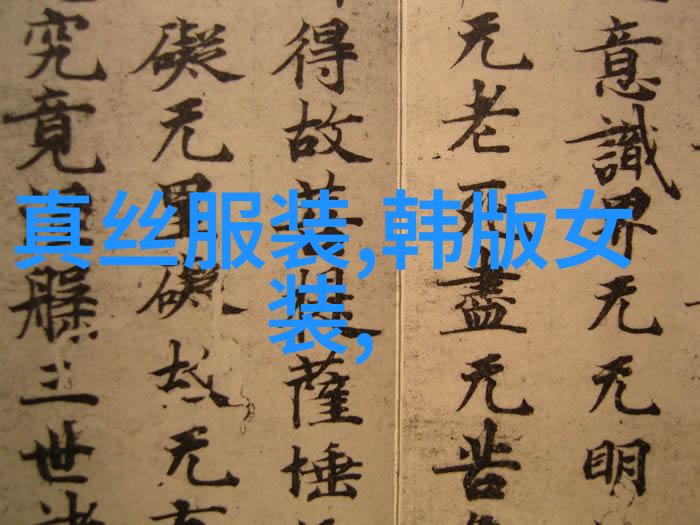 真丝服装,韩版女
装,
意識界无无明
无老死盡无苦
得故菩提薩埵
礙无罣礙故无有
究竟涅槃三世諸